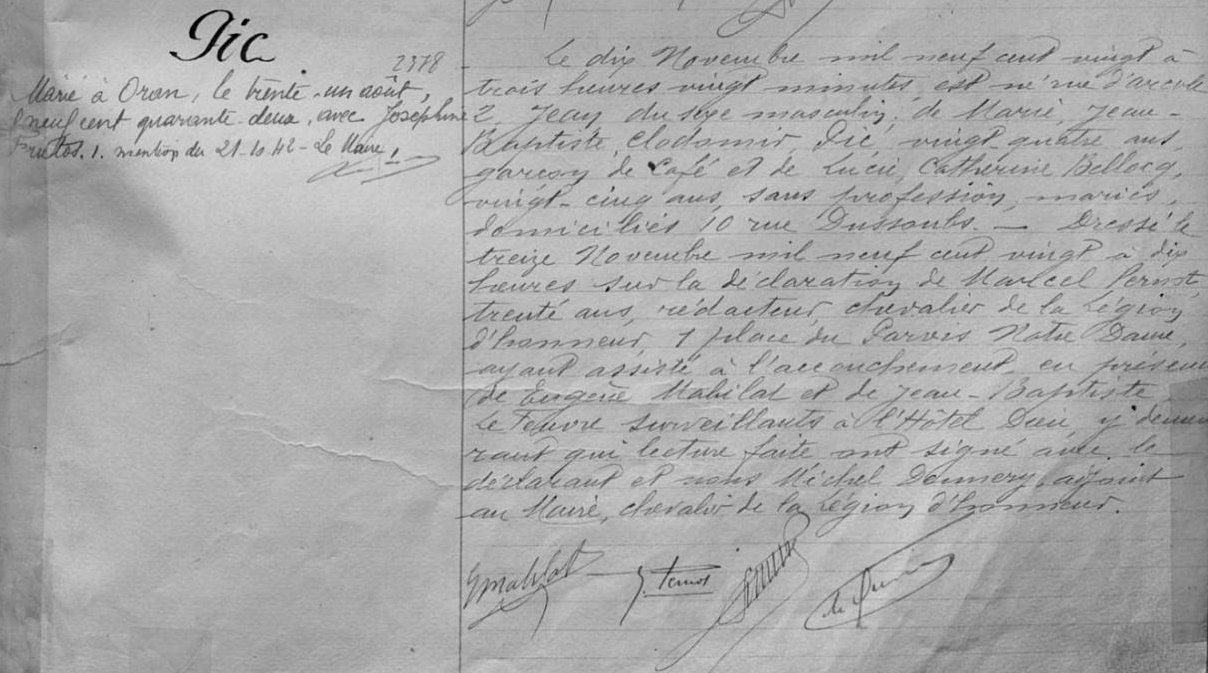 Pic
2378
Marié à Oran, le trente-un août,
neuf cent quarante-deux, avec Joséphine
1. mention du 21-10-42 - Le Maire,
Le dix Novembre mil neuf cent vingt à
trois heures vingt minutes, est né rue d'arcole
2, Jean, du sexe masculin, de Marie, Jean-
Baptiste, Clodomir Pic, vingt-quatre ans,
garçon de Café et de Lucie, Catherine Bellocq,
vingt-cinq ans, sans profession, mariés,
domiciliés 10 rue Dussoubs. — Dressé le
treize Novembre mil neuf cent vingt à dix
heures sur la déclaration de Marcel Pernot,
trente ans, rédacteur, chevalier de la Légion
d'honneur, 1 place du Parvis Notre Dame,
ayant assisté à l'accouchement, en présence
de Eugène Mahilat et de Jean-Baptiste
Le Feuvre surveillants à l'Hôtel Dieu, y demeu
rant qui lecture faite ont signé avec le
déclarant et nous Michel Dennery, adjoint
au Maire, chevalier de la Légion d'honneur.
EMahilat